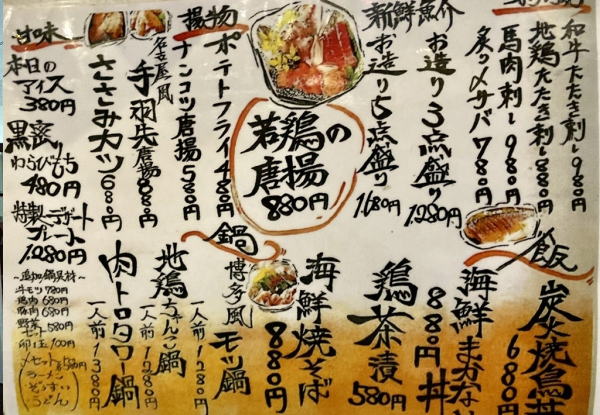 和牛たたき刺し980円
地鶏たたき刺し880円
馬肉刺し980円
炙り〆サバ780円
新鮮魚介
お造り3点盛り
1,280円
お造り5点盛り
1,680円
若鶏の
唐揚
880円
揚物
ポテトフライ480円
ナンコツ唐揚580円
名古屋風
手羽先唐揚
ささみカツ680円
甘味
本日の
アイス
380円
黒蜜
わらびもち
480円
特製デザート
プレート
1,280円
飯
炭火焼鳥丼
680円
海鮮まかない丼
880円
鶏茶漬
580円
海鮮焼そば
880円
鍋
博多風
モツ鍋
一人前1280円
地鶏ちゃんこ鍋
一人前1280円
肉トロタワー鍋
一人前1380円
~追加鍋具材~
牛モツ780円
鶏肉680円
豚肉680円
野菜セット580円
卵1玉100円
〆セット各550円
ラーメン
ぞうすい
うどん